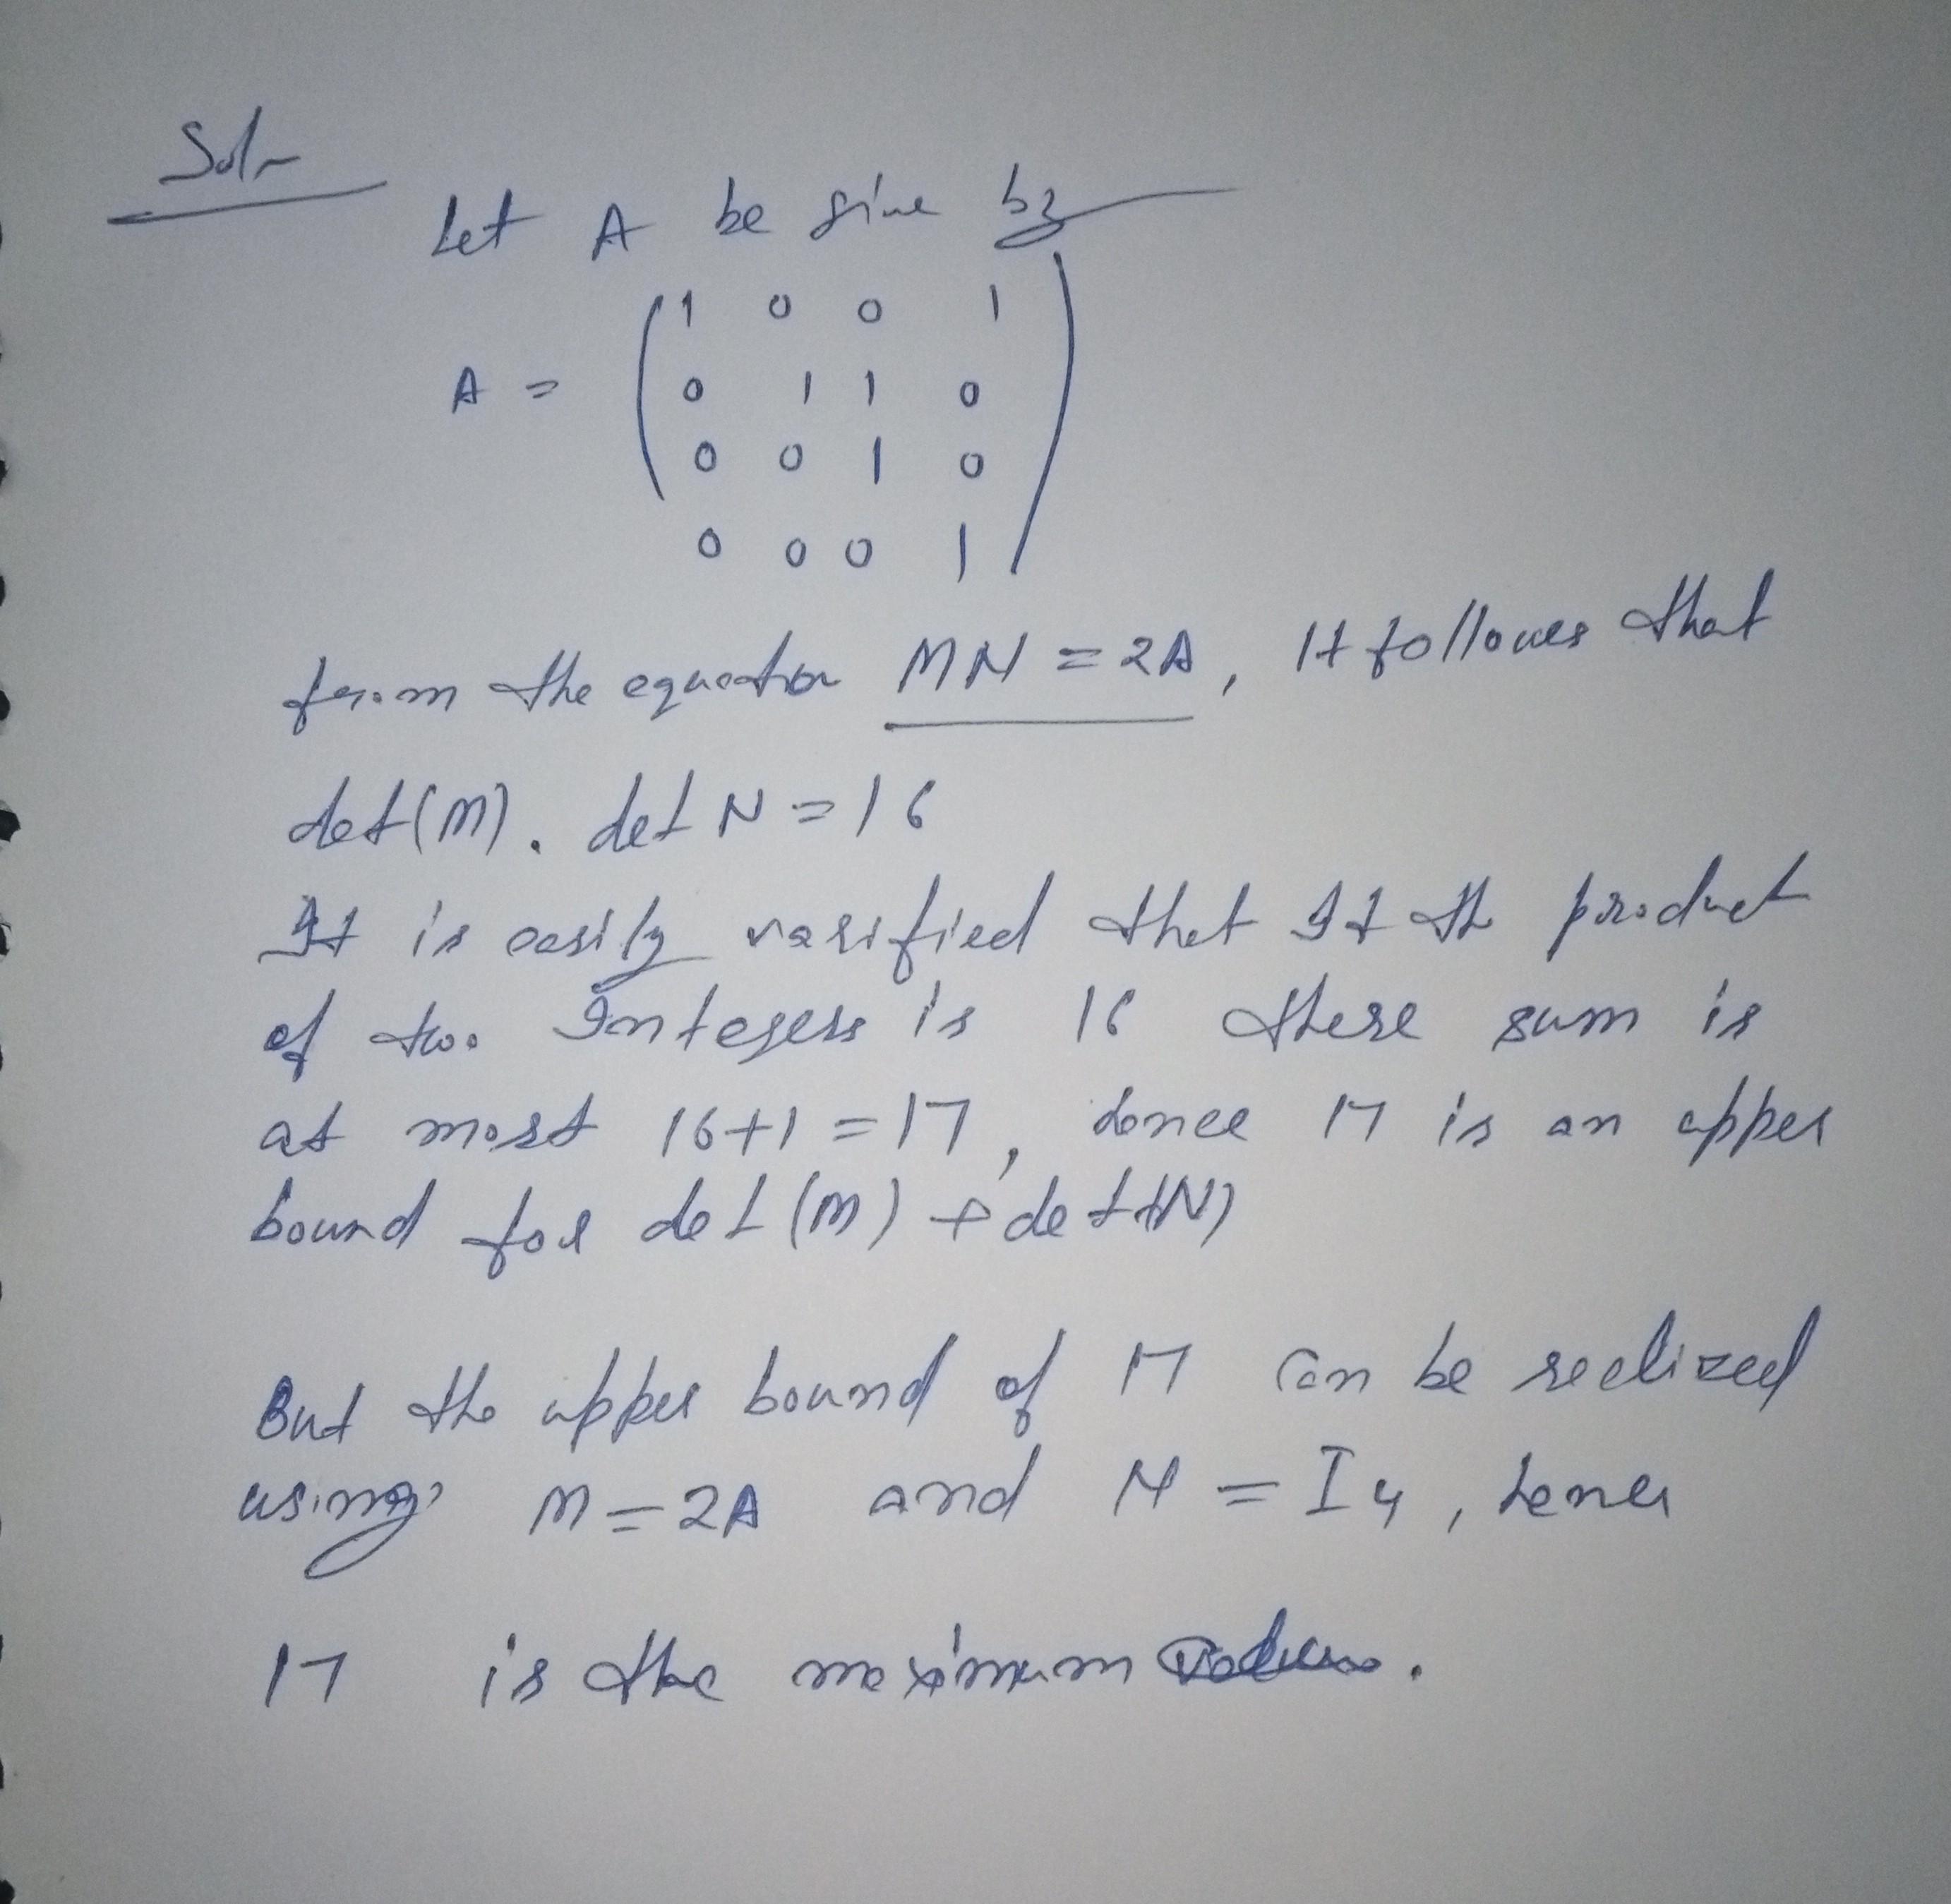 Soln
Let A be give by
A = ( 1 0 0 1
0 1 1 0
0 0 1 0
0 0 0 1 )
from the equation MN = 2A, It follows that
det(M). det N = 16
It is easily varified that If the product
of two Integers is 16 there sum is
at most 16+1 = 17, hence 17 is an upper
bound for det (M) + det (N)
But the upper bound of 17 can be reelized
using M = 2A and N = I4, hence
17 is the maximum value.